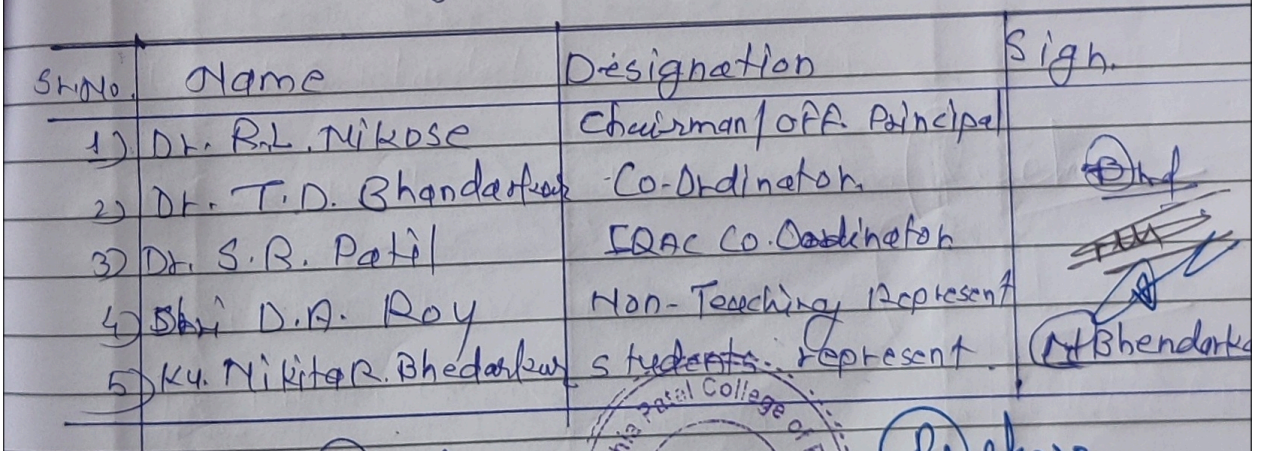 Sr.No. Name Designation Sign.
1) Dr. R.L. Nikose Chairman/Off. Principal
2) Dr. T.D. Bhandarkar Co-Ordinator
3) Dr. S.R. Patil IQAC Co.Oordinator
4) Shri D.A. Roy Non-Teaching Represent
5) Ku. Nikita R. Bhedarkar students represent. Bhendarka
Patel College of